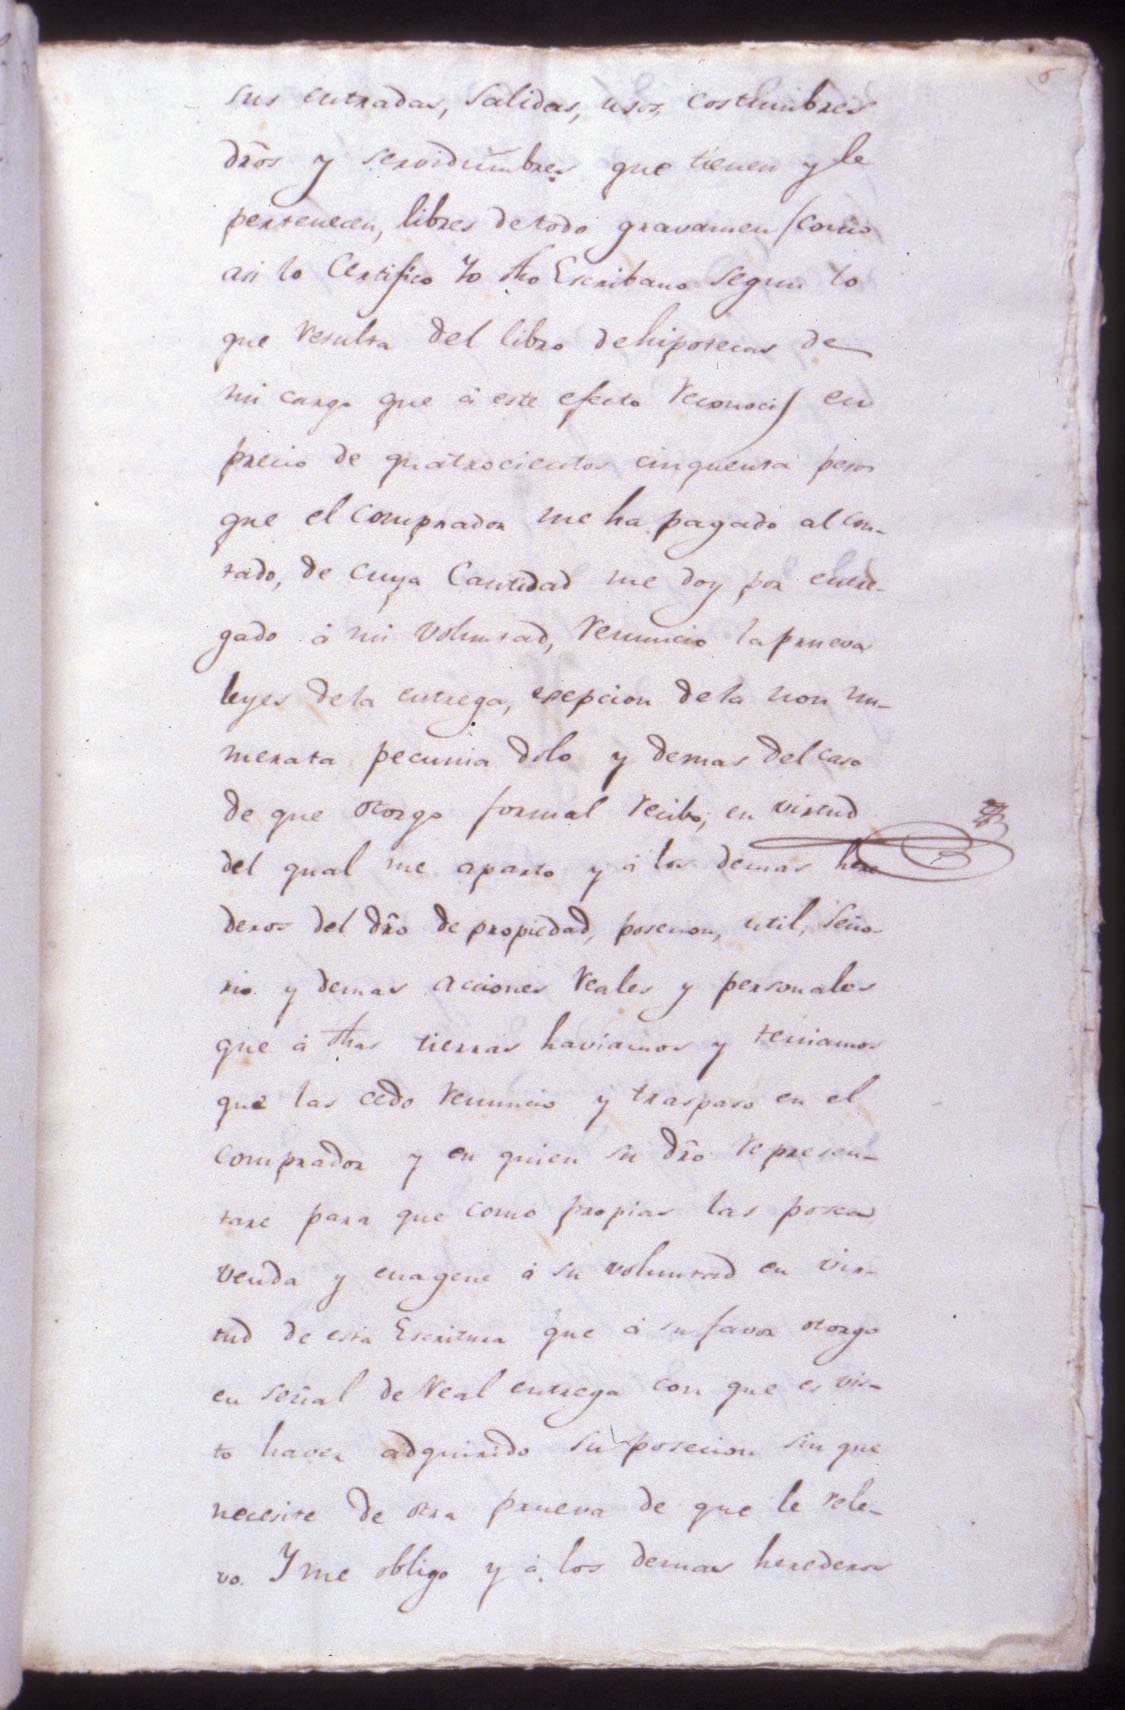 6
sus entradas, salidas, usos, costumbres
dr̃os y servidumbres que tienen y le
pertenecen, libres de todo gravamen /como
asi lo Certifico Yo dho Escribano segun lo
que resulta del libro de hipotecas de
mi cargo que á este efecto reconoci/ en
precio de quatrocientos cinquenta pesos
que el comprador me ha pagado al con-
tado, de cuya Cantidad me doy por entre-
gado á mi voluntad, renuncio la prueva
leyes de la entrega, esepcion de la non nu-
merata pecunia dolo y demas del caso
de que otorgo formal recibo; en virtud
del qual me aparto y á los demas here
deros del dr̃o de propiedad, posecion, util, Seño-
rio y demas acciones reales y personales
que á dhas tierras haviamos y teniamos
que las cedo renuncio y traspaso en el
comprador y en quien su dr̃o represen-
tare para que como propias las posea
venda y enagene á su voluntad en vir-
tud de esta Escritura que á su favor otorgo
en señal de real entrega con que es vis-
to haver adquirido su posecion sin que
necesite de otra prueva de que le rele-
vo. Y me obligo y á los demas herederos